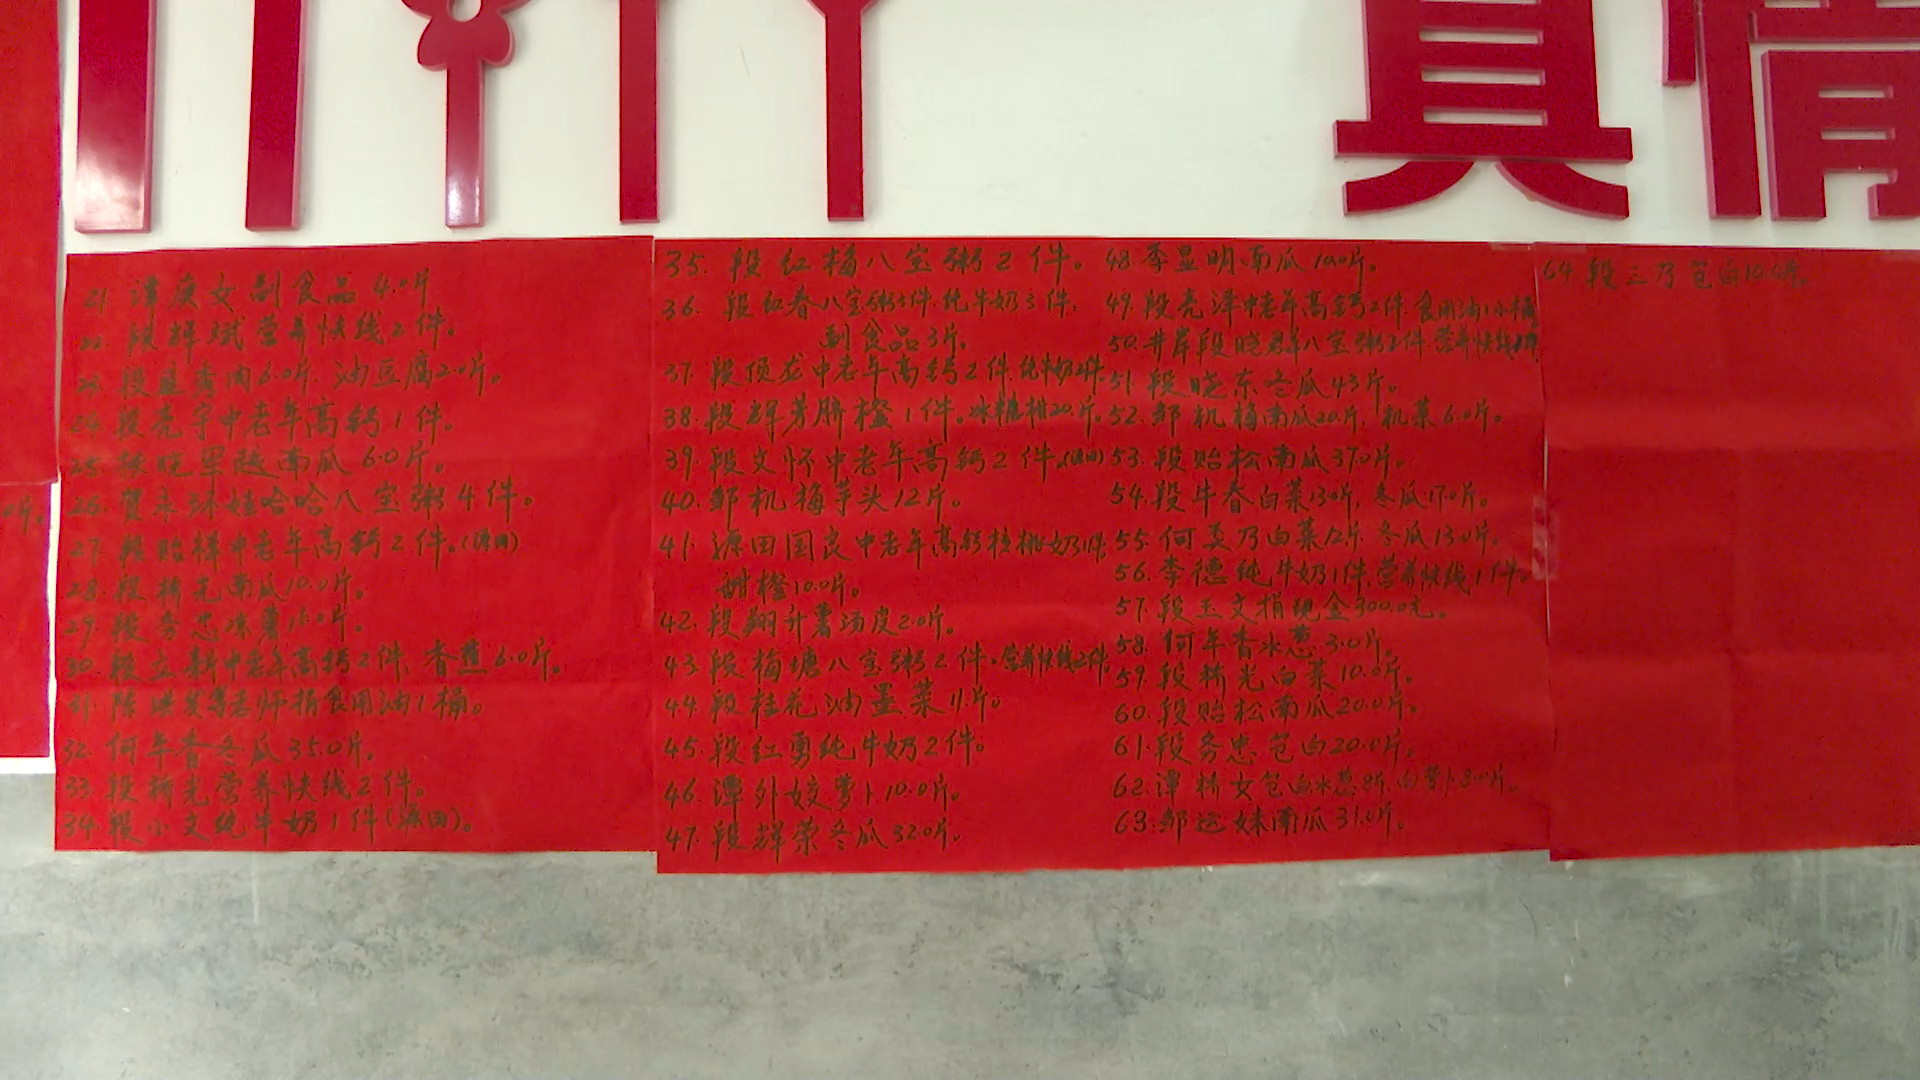 真情
21 谭庚女副食品 4.0斤
22. 段辉斌营养快线2件。
23. 段 肉6.0斤. 油豆腐2.0斤。
24. 段亮宇中老年高钙1件。
25. 段晓 南瓜 60斤。
26. 贺永环娃哈哈八宝粥4件。
27. 段贻祥中老年高钙2件。(源田)
28. 段桥光南瓜10.0斤。
29. 段务忠凉薯 斤。
30. 段立新中老年高钙2件, 香蕉6.0斤。
31. 陈 老师捐食用油1桶。
32. 何年香冬瓜35.0斤。
33. 段桥光营养快线2件。
34. 段小文纯牛奶1件(源田)。
35. 段红梅八宝粥2件。
36. 段红春八宝粥3件.纯牛奶3件,
副食品3斤。
37. 段顶龙中老年高钙2件.纯牛奶2件.
38. 段辉芳脐橙1件。冰糖柑20斤。
39. 段文怀中老年高钙2件。(源田)
40. 邹机梅芋头12斤。
41. 源田国良中老年高钙核桃奶1件
甜橙10.0斤。
42. 段翔计薯汤皮2.0斤。
43. 段梅塘八宝粥2件.营养快线2件.
44. 段桂花油墨菜11斤。
45. 段红勇纯牛奶2件。
46. 谭外姣萝卜10.0斤。
47. 段辉荣冬瓜32.0斤。
48. 李显明南瓜10.0斤。
49. 段亮泽中老年高钙2件.食用油1小桶
50. 井岸段晓君八宝粥2件.营养快线
51. 段晓东冬瓜43斤。
52. 邹机梅南瓜20斤, 机菜6.0斤。
53. 段贻松南瓜37.0斤。
54. 段牛春白菜13.0斤, 冬瓜17.0斤。
55. 何美乃白菜12斤.冬瓜13.0斤。
56. 李德纯牛奶1件,营养快线1件。
57. 段玉文捐现金300.0元。
58. 何年香水葱3.0斤。
59. 段桥光白菜10.0斤。
60. 段贻松南瓜20.0斤。
61. 段务忠苞白20.0斤。
62. 谭桥女苞白水葱8斤.白萝卜8.0斤。
63. 邹运妹南瓜31.0斤。
64. 段三乃苞白10.0斤。